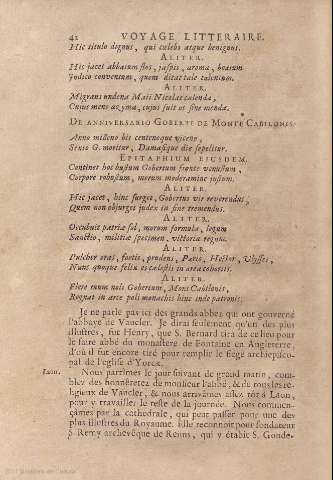 42 VOYAGE LITTERAIRE.
Hic titulo dignus, qui cœlebs atque benignus.
ALITER.
Hic jacet abbatum flos, jaspis, aroma, beatum
Judico conventum, quem ditat tale talentum.
ALITER.
Migrans undena Maii Nicolae calenda,
Cujus mens azyma, cujus fuit os sine menda.
DE ANNIVERSARIO GOBERTI DE MONTE CABILONIS.
Anno milleno bis centenoque viceno,
Senis G. moritur, Damastique die sepelitur.
EPITAPHIUM EJUSDEM.
Continet hoc bustum Gobertum fronte venustum,
Corpore robustum, morum moderamine justum.
ALITER.
Hic jacet, hinc surget, Gobertus vir reverendus,
Quem non objurget judex in fine tremendus.
ALITER.
Occubuit patriæ sol, morum formula, legum
Sanctio, militiæ specimen, victoria regum.
ALITER.
Pulcher eras, fortis, prudens, Paris, Hector, Ulysses,
Nunc quoque felix es cælestis in arca cohortis.
ALITER.
Flere tuum noli Gobertum, Mons Cabilonis,
Regnat in arce poli monachis hinc inde patronis.
Je ne parle pas ici des grands abbez qui ont gouverné
l'abbaye de Vaucler. Je dirai seulement qu'un des plus
illustres, fut Henry, que S. Bernard tira de ce lieu pour
le faire abbé du monastére de Fontaine en Angleterre,
d'où il fut encore tiré pour remplir le siege archiepisco-
pal de l'eglise d'Yorck.
Laon. Nous partîmes le jour suivant de grand matin, com-
blez des honnêtetez de monsieur l'abbé, & de tous les re-
ligieux de Vaucler, & nous arrivâmes assez tôt à Laon,
pour y travailler le reste de la journée. Nous commen-
çâmes par la cathedrale, qui peut passer pour une des
plus illustres du Royaume. Elle reconnoit pour fondateur
S. Remy archevêque de Reims, qui y établit S. Gonde-